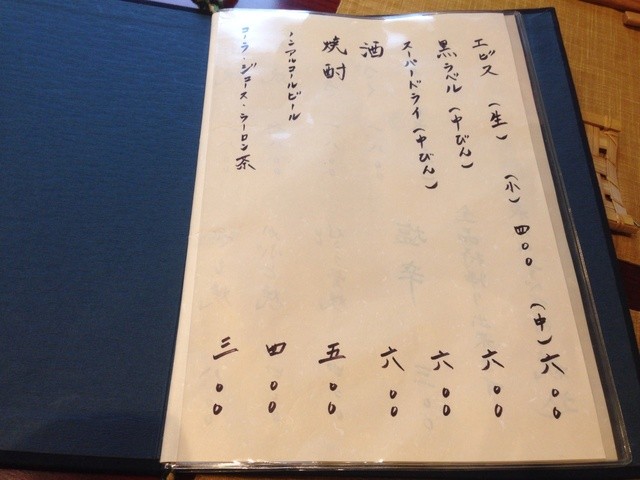 エビス (生) (小) 四〇〇 (中) 六〇〇
黒ラベル (中びん) 六〇〇
スーパードライ (中びん) 六〇〇
酒 六〇〇
焼酎 五〇〇
ノンアルコールビール 四〇〇
コーラ・ジュース・ウーロン茶 三〇〇